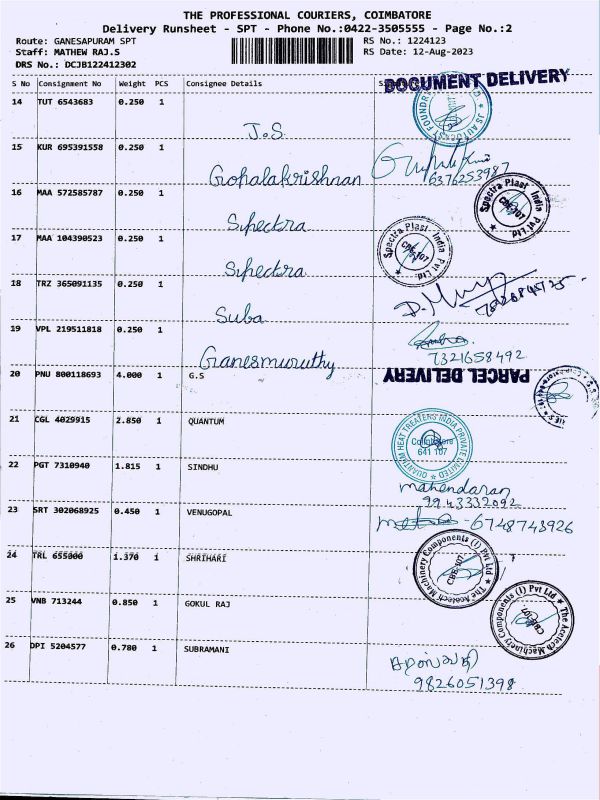 THE PROFESSIONAL COURIERS, COIMBATORE
Delivery Runsheet - SPT - Phone No.:0422-3505555 - Page No.:2
Route: GANESAPURAM SPT
RS No.: 1224123
Staff: MATHEW RAJ.S
RS Date: 12-Aug-2023
DRS No.: DCJB122412302
S No Consignment No Weight PCS Consignee Details
DOCUMENT DELIVERY
14 TUT 6543683 0.250 1 J.S.
15 KUR 695391558 0.250 1 Gophalakrishnan
6376253987
16 MAA 572585787 0.250 1 Sipectra
Spectra Plast India Pvt Ltd. CBE-107
17 MAA 104390523 0.250 1 Sipectra
Spectra Plast India Pvt Ltd. CBE-107
18 TRZ 365091135 0.250 1 Suba
19 VPL 219511818 0.250 1 Ganesmuruthy
7321658492
PARCEL DELIVERY
20 PNU 800118693 4.000 1 G.S
21 CGL 4029915 2.850 1 QUANTUM
QUANTUM HEAT TREATERS INDIA PRIVATE LIMITED Coimbatore 641 107
22 PGT 7310940 1.815 1 SINDHU
mahendaran
9943332092
23 SRT 302068925 0.450 1 VENUGOPAL
-6748743926
24 TRL 655000 1.370 1 SHRIHARI
The Acetech Machinery Components (I) Pvt Ltd CBE-107.
25 VNB 713244 0.850 1 GOKUL RAJ
The Acetech Machinery Components (I) Pvt Ltd CBE-107.
26 DPI 5204577 0.780 1 SUBRAMANI
9826051398